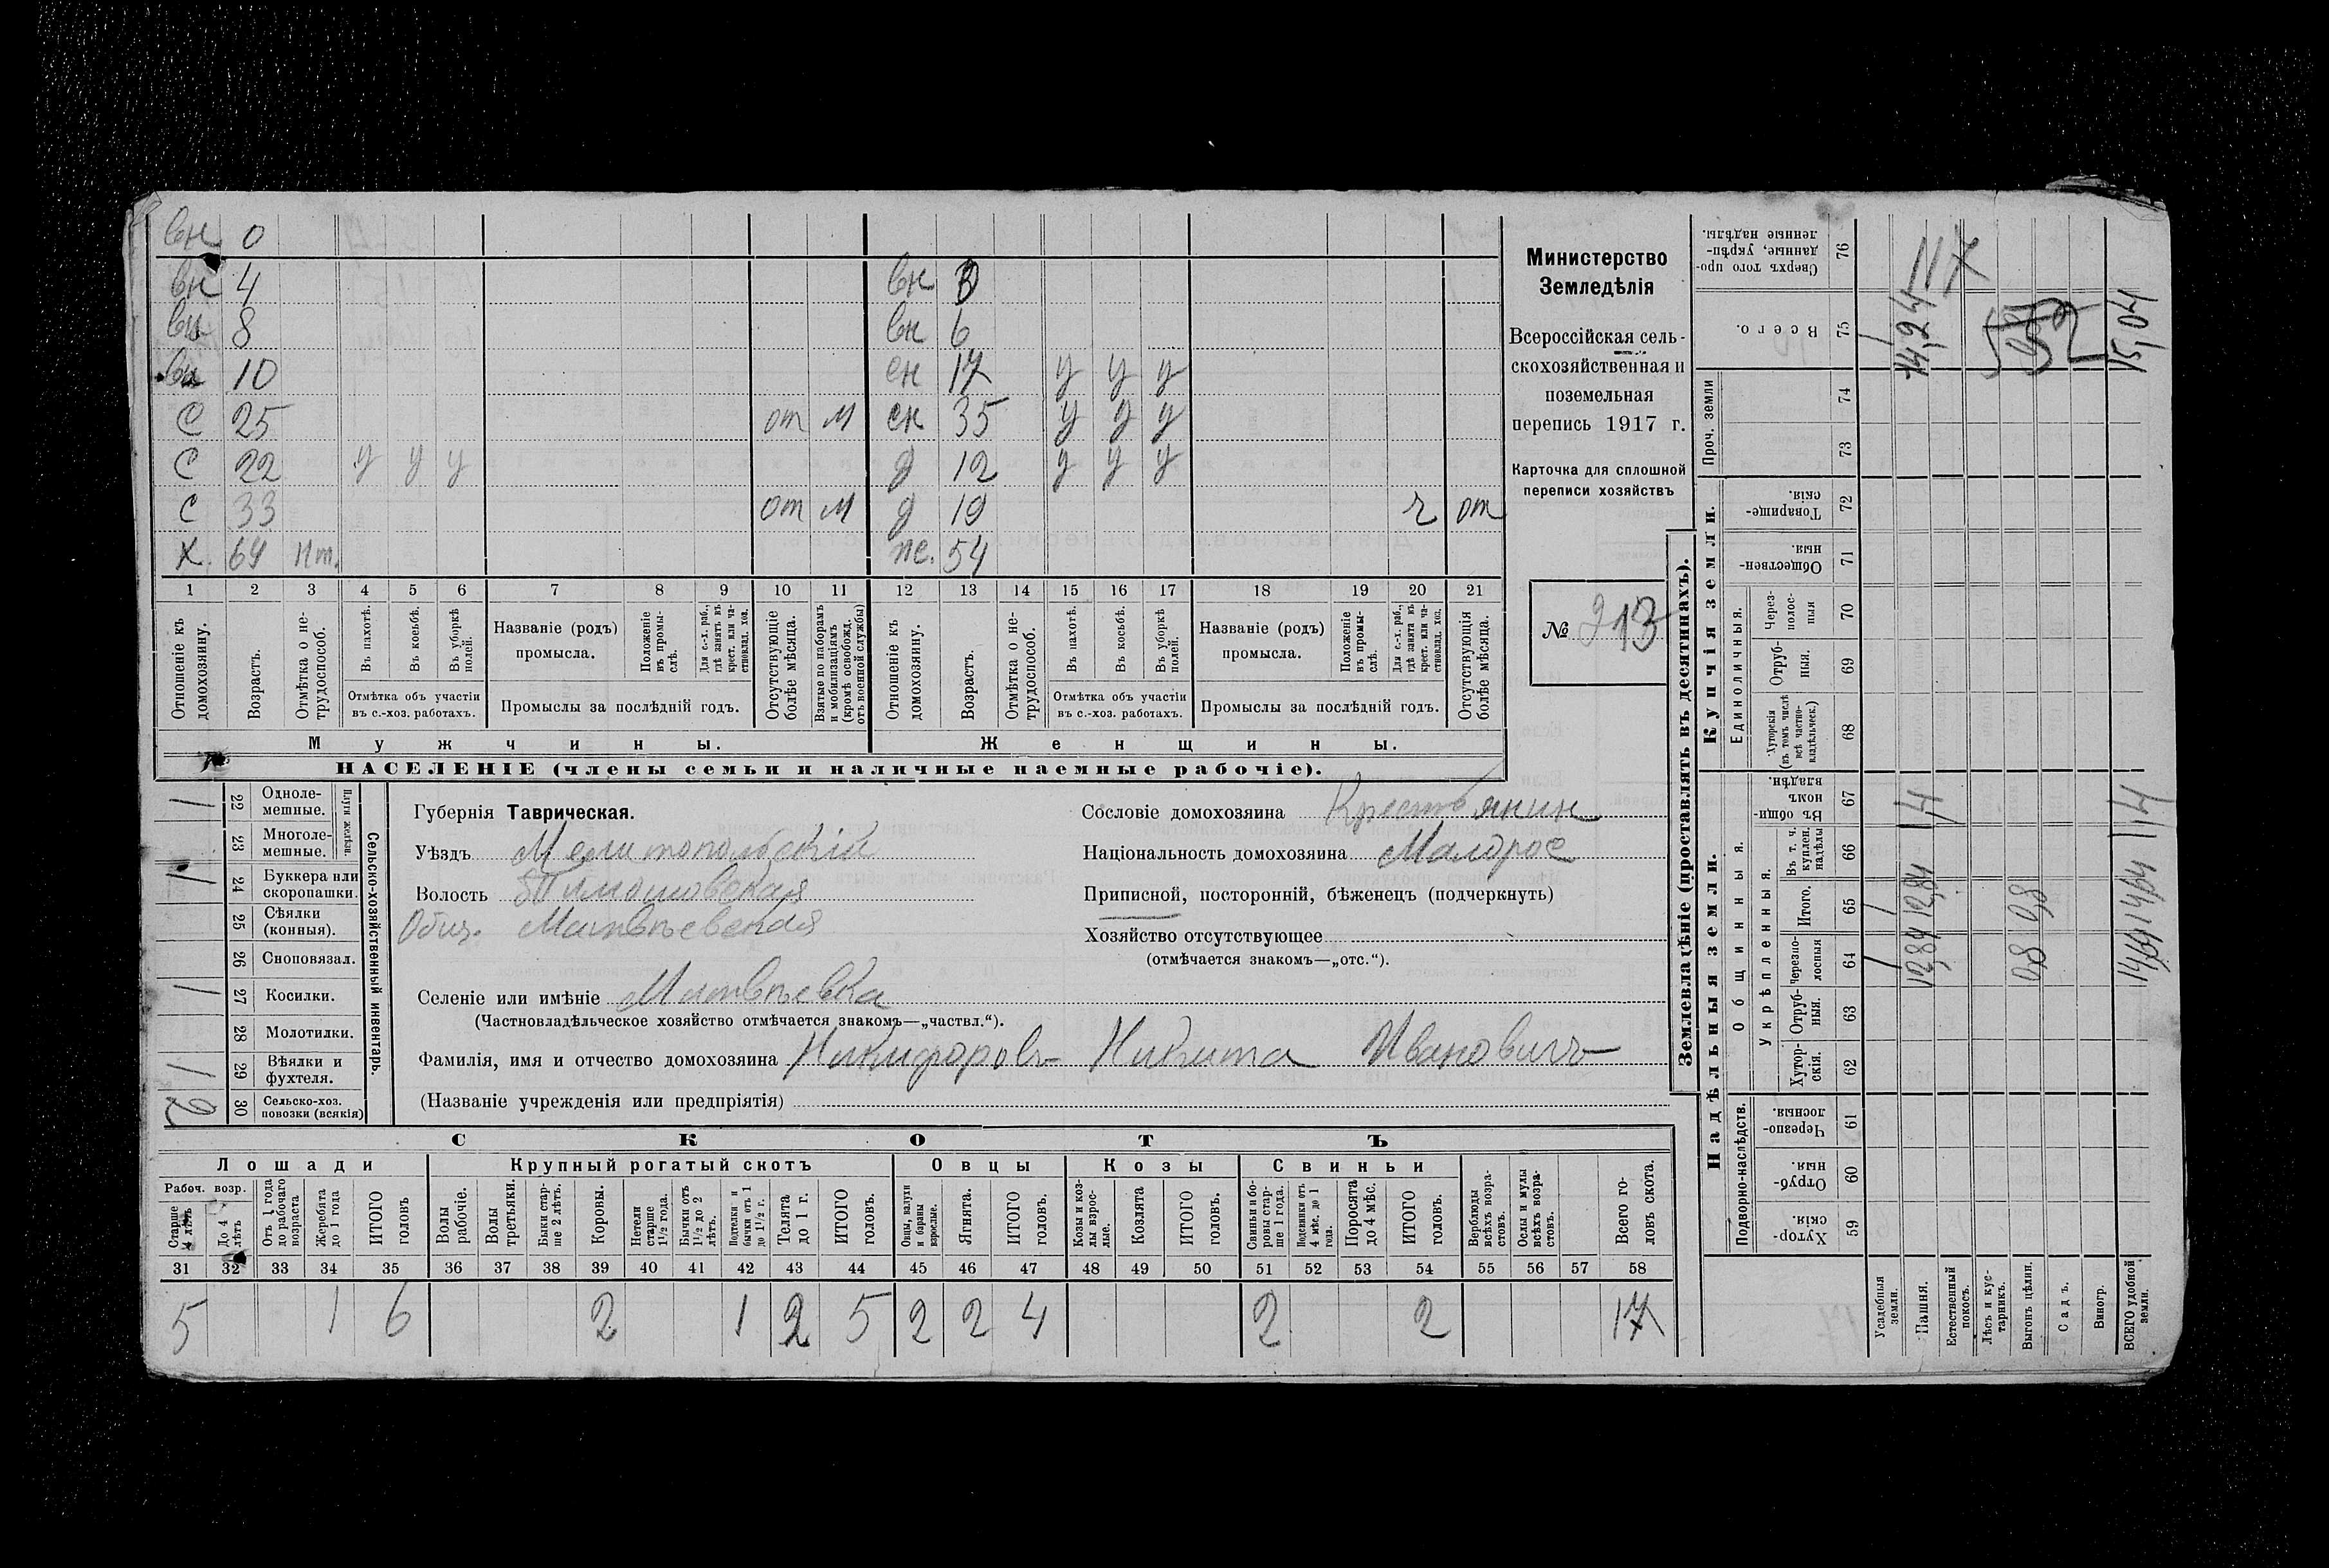 вн 0
вн 4 вн 3
вн 8 вн 6
вн 10 сн 17 у у у
С 25 от М сн 35 у у у
С 22 у у у д 12 у у у
С 33 от М д 19 ч от
Х. 64 пт. же. 54
1 2 3 4 5 6 7 8 9 10 11 12 13 14 15 16 17 18 19 20 21
Отношеніе къ домохозяину.
Возрастъ.
Отмѣтка о не-трудоспособ.
Въ пахотѣ.
Въ косьбѣ.
Въ уборкѣ полей.
Отмѣтка объ участіи
въ с.-хоз. работахъ.
Названіе (родъ)
промысла.
Положеніе въ промы-слѣ.
Для с.-х. раб., гдѣ занятъ въ крест. или ча-стновлад. хоз.
Промыслы за послѣдній годъ.
Отсутствующіе болѣе мѣсяца.
Взятые по наборамъ и мобилизаціямъ (кромѣ освобожд. отъ военной службы)
Отношеніе къ домохозяину.
Возрастъ.
Отмѣтка о не-трудоспособ.
Въ пахотѣ.
Въ косьбѣ.
Въ уборкѣ полей.
Отмѣтка объ участіи
въ с.-хоз. работахъ.
Названіе (родъ)
промысла.
Положеніе въ промы-слѣ.
Для с.-х. раб., гдѣ занята въ крест. или ча-стновлад. хоз.
Промыслы за послѣдній годъ.
Отсутствующія болѣе мѣсяца.
Мужчины. Женщины.
НАСЕЛЕНІЕ (члены семьи и наличные наемные рабочіе).
Министерство
Земледѣлія
Всероссійская сель-
скохозяйственная и
поземельная
перепись 1917 г.
Карточка для сплошной
переписи хозяйствъ
№ 213
Сельско-хозяйственный инвентарь.
Плуги желѣзн.
1 22 Одноле-мешные.
23 Многоле-мешные.
1 24 Буккера или скоропашки.
25 Сѣялки (конныя).
26 Сноповязал.
1 27 Косилки.
28 Молотилки.
1 29 Вѣялки и фухтеля.
2 30 Сельско-хоз. повозки (всякія)
Губернія Таврическая.
Уѣздъ Мелитопольскій
Волость Тимошовская
Общ. Матвѣевская
Селеніе или имѣніе Матвѣевка
(Частновладѣльческое хозяйство отмѣчается знакомъ—„частвл.“).
Фамилія, имя и отчество домохозяина Никифоровъ Никита Ивановичъ
(Названіе учрежденія или предпріятія)
Сословіе домохозяина Крестьянин
Національность домохозяина Малорос
Приписной, посторонній, бѣженецъ (подчеркнуть)
Хозяйство отсутствующее
(отмѣчается знакомъ—„отс.“).
СКОТЪ
Лошади Крупный рогатый скотъ Овцы Козы Свиньи
Рабоч. возр.
Старше 4 лѣтъ
До 4 лѣтъ
Отъ 1 года до рабочаго возраста
Жеребята до 1 года
ИТОГО головъ
Волы рабочіе.
Волы третьяки.
Быки стар-ше 2 лѣтъ.
Коровы.
Нетели старше 1½ года.
Бычки отъ 1½ до 2 лѣтъ.
Подтелки и бычки отъ 1 до 1½ г.
Телята до 1 г.
ИТОГО головъ.
Овцы, валухи и бараны взрослые.
Ягнята.
ИТОГО головъ.
Козы и коз-лы взрос-лые.
Козлята
ИТОГО головъ.
Свиньи и бо-ровы стар-ше 1 года.
Подсвинки отъ 4 мѣс. до 1 года.
Поросята до 4 мѣс.
ИТОГО головъ.
Верблюды всѣхъ возра-стовъ.
Ослы и мулы всѣхъ возра-стовъ.
Всего го-ловъ скота.
31 32 33 34 35 36 37 38 39 40 41 42 43 44 45 46 47 48 49 50 51 52 53 54 55 56 57 58
5 1 6 2 1 2 5 2 2 4 2 2 17
Землевладѣніе (проставлять въ десятинахъ).
Надѣльныя земли. Купчія земли.
Подворно-наслѣдств.
Общинныя.
Укрѣпленныя.
Единоличныя.
Проч. земли
59 Хутор-скія.
60 Отруб-ныя.
61 Черезпо-лосныя.
62 Хутор-скія.
63 Отруб-ныя.
64 Черезпо-лосныя
65 Итого.
66 Въ т. ч. куплен. надѣлы
67 Въ общин-номъ владѣн.
68 Хуторскія (въ томъ числѣ всѣ частно-владѣльческ.)
69 Отруб-ныя.
70 Через-полос-ныя
71 Обществен-ныя.
72 Товарище-скія.
73
74
75 Всего.
76 Сверхъ того про-данные, укрѣп-ленные надѣлы.
Усадебныя земли.
Пашня. 12,84 12,84 1,4 14,24
117
Естественный покосъ.
Лѣсъ и кус-тарникъ.
Выгонъ цѣлин. 0,8 0,8
52
Садъ.
Виногр.
ВСЕГО удобной земли. 1,4 15,04